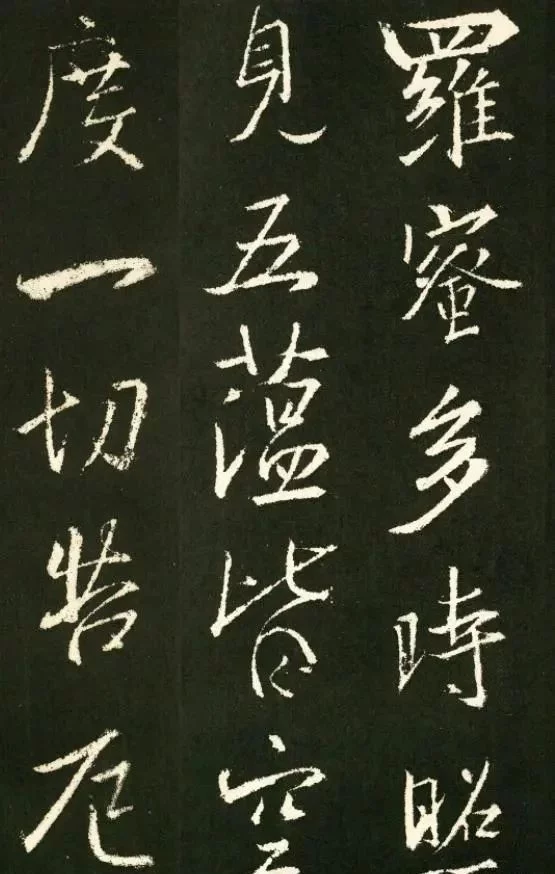 羅蜜多時照
見五薀皆空
度一切苦厄